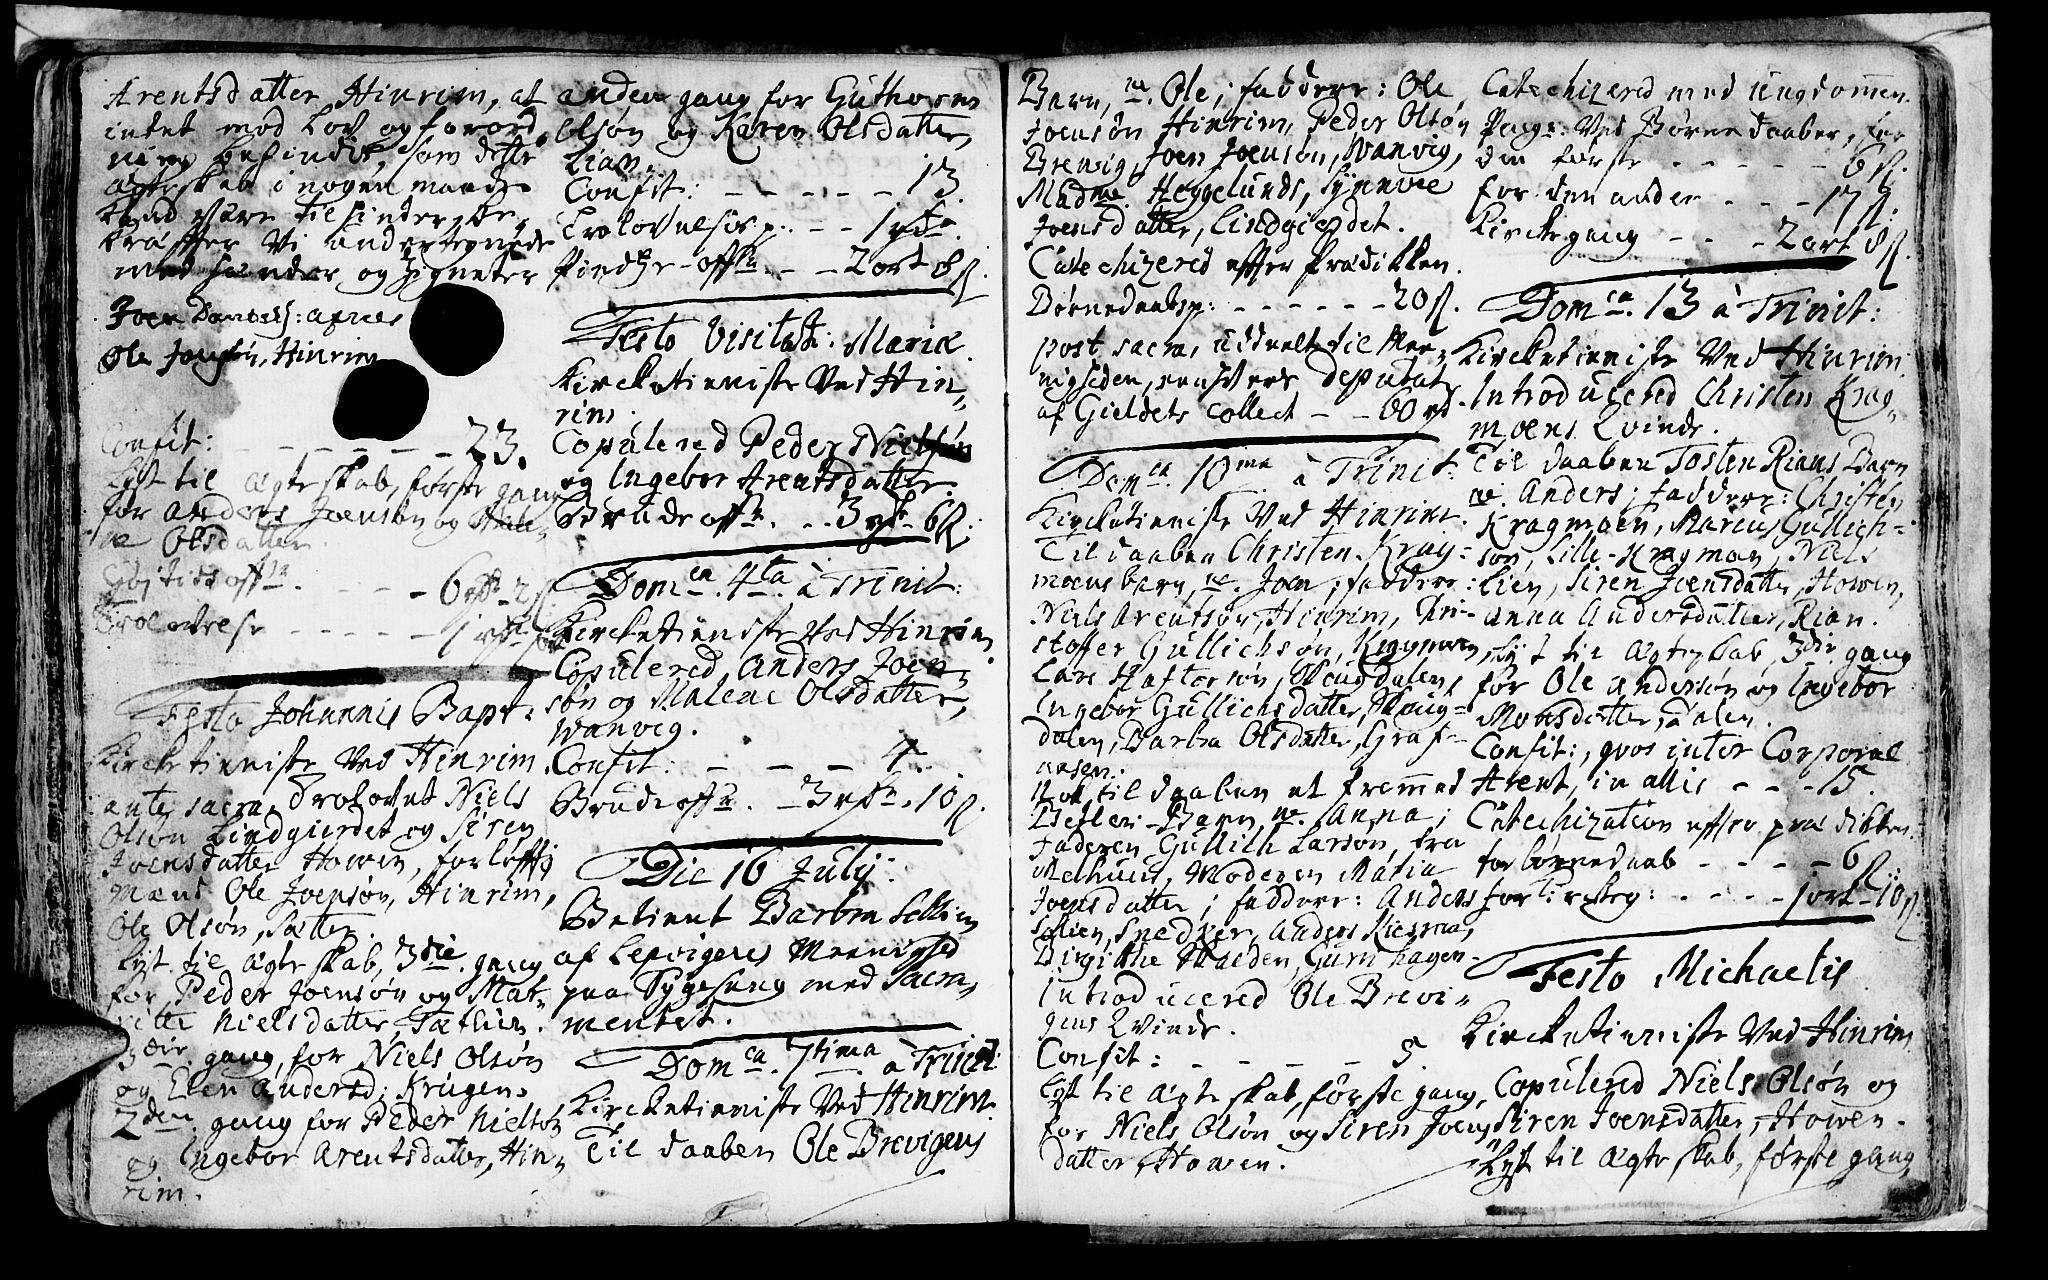 Arentsdatter Hinrim, at
intet mod Lov og forord,
ning befindes, som dette
ægteskab i nogen maade
kand være til hinder, be,
kræffter Vi undertegnede
med hænder og Zigneter
Joen
Ole Joensøn, Hinrim
Confit: - - - - - 23.
Lyst til ægteskab, første gang
for Anders Joensøn og Male,
ne Olsdatter.
Festo Johannis Bapt:
Kircketienniste Ved Hinrim.
ante sacra, trolovet Niels
Olsøn Lindgierdet og Siren
Joensdatter Howen, forløffti
Mænd Ole Joensøn, Hinrim,
Ole Olsøn, Sætter.
Lyst til ægteskab, 3die gang
for Peder Joensøn og Mar,
Nielsdatter
3die gang, for Niels Olsøn
og Elen Andersd: Krugen.
2den gang for Peder Nielsøn
og Ingebor Arentsdatter, Hin,
rim.
anden gang for Guthorm
Olsøn og Karen Olsdatter,
Lian.
Confit: - - - - - 13
Trolovelses p. - - 1 rdr.
Pindze-offer - - 2 ort 8 s.
Festo Visitat: Mariæ
Kircketienniste Ved Hin,
rim.
Copulered Peder Nielsøn
og Ingebor Arentsdatter.
Brudeoffer. - - 3 rdr 6 s.
Dom ca. 4 ta. à Trinit:
Kircketienniste Ved Hinrim.
Copulered Anders Joen,
søn og Malene Olsdatter,
Wanvig.
Confit: - - - 4.
Brudeoffer. - 3 rdr. 10 s.
Die 16 July:
Betient Barbra Sellien
af Lexvigens Meenighed
paa Sygeseng med Sacra,
mentet.
Dom ca. 7 tima à Trinit:
Kircketienniste Ved Hinrim.
Til daaben Ole Brevigens
Barn, ne. Ole; faddere: Ole
Joensøn Hinrim, Peder Olsøn
Brevig, Joen Joensøn, Wanvig,
Madme. Heggelunds, Synnøve
Joensdatter, Lindgierdet.
Catechizered effter Prædikken.
Børnedaabsp: - - - - - 20 s.
post sacra, uddeelt til Mee,
nigheden, eenhvers deputat
af Gieldets collect - - 60 rd
Dom ca. 10 ma à Trinit:
Kircketienniste Ved Hinrim.
Til daaben Christen Krag-
moens barn, ne. Joen; faddere:
Niels Arentsøn, Hinrim, Chri-
stoffer Gullichsøn, Kragmoen,
Lars Haftorsøn, Skougdalen,
Ingebor Gullichsdatter, Skoug-
dalen, Barbra Olsdatter, Graf-
aasen.
Nok til daaben et fremmed
Betleri-Barn ne. Anna;
Faderen Gullich Larsøn, fra
Melhuus, Moderen Maria
Joensdatter; faddere: Anders
Sellien, Snedker, Anders
Birgitthe Gurn Hagen.
Introducered Ole Brevi,
gens Qvinde.
Confit: - - - - 5
Lyst til ægteskab, første gang,
for Niels Olsøn og Siren Joens,
datter, Howen.
Catechizered med ungdommen.
Penge: Ved Børnedaaber, for
den første - - - - - 6 s.
for den anden - - - 17 s.
Kirkegang - - - 2 ort 8 s.
Dom ca. 13 à Trinit:
Kircketienniste Ved Hinrim.
Introducered Christen Krag,
moens Qvinde.
Til daaben Tosten Rians Barn
ne. Anders; faddere: Christen
Kragmoen, Marcus Gullich-
søn, Lille-Kragmoen, Niels
Lien, Siren Joensdatter, Howen,
Anna Andersdatter, Rian.
Lyst til ægteskab, 3die gang
for Ole Andersøn og Ingebor
Monsdatter, Aalen.
Confit:, qvos inter Corporal
Arent, in allis - - - 15.
Catechization effter prædikken
for børnedaab - - - - 6 s.
for Kirkeg: - - - - 1 ort - 10 s.
Festo Michaelis
Kircketienniste Ved Hinrim
Copulered Niels Olsøn og
Siren Joensdatter, Howen.
Lyst til ægteskab, første gang